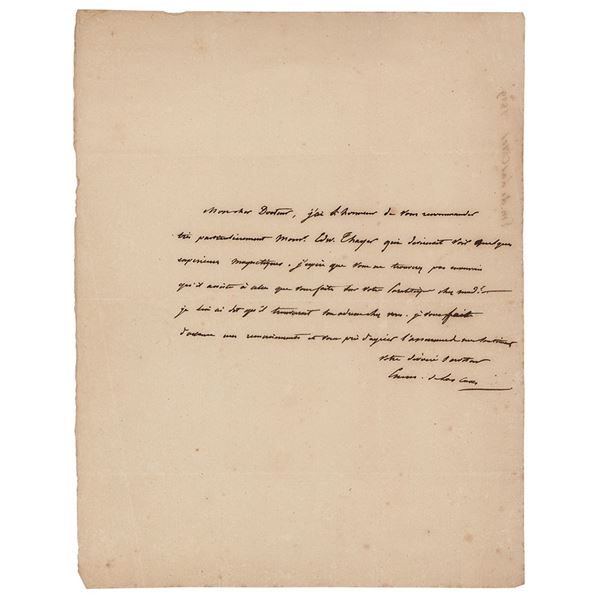 Mon cher Docteur, j'ai l'honneur de vous recommander
très particulièrement Monsr. Edw. Thayer qui désirerait voir quelques
expériences magnétiques. j'espère que vous ne trouverez pas mauvais
qu'il assiste à celles que vous faites sur votre chez mad.e
je lui ai dit qu'il trouverait son adresse chez vous. je vous
d'avance mes remerciements et vous prie d'agréer l'assurance de mes
votre dévoué serviteur
Emm. de Las Cases